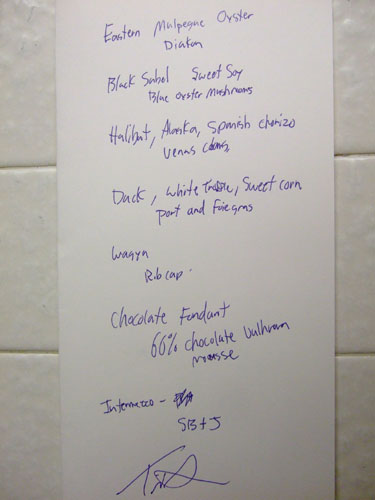 Eastern Malpeque Oyster
Diaton
Black Sabel Sweet Soy
Blue oyster mushrooms
Halibut, Alaska, Spanish chorizo
venas clams
Duck, white Truffle, Sweet corn
port and Foie gras
Wagyu
Rib cap
Chocolate Fondant
66% chocolate Valhrona
mousse
Intermezzo -
SB + J